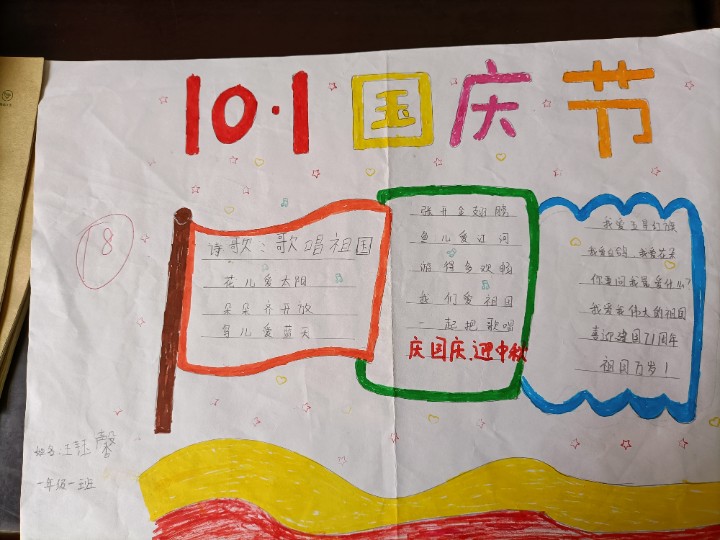 10·1 国庆节
诗歌:歌唱祖国
花儿爱太阳
朵朵齐开放
鸟儿爱蓝天
张开金翅膀
鱼儿爱江河
游得多欢畅
我们爱祖国
一起把歌唱
庆国庆.迎中秋
我爱五星红旗
我爱白鸽 我爱花朵
你要问我最爱什么?
我爱我伟大的祖国
喜迎建国71周年
祖国万岁!
18
姓名:王钰馨
一年级一班